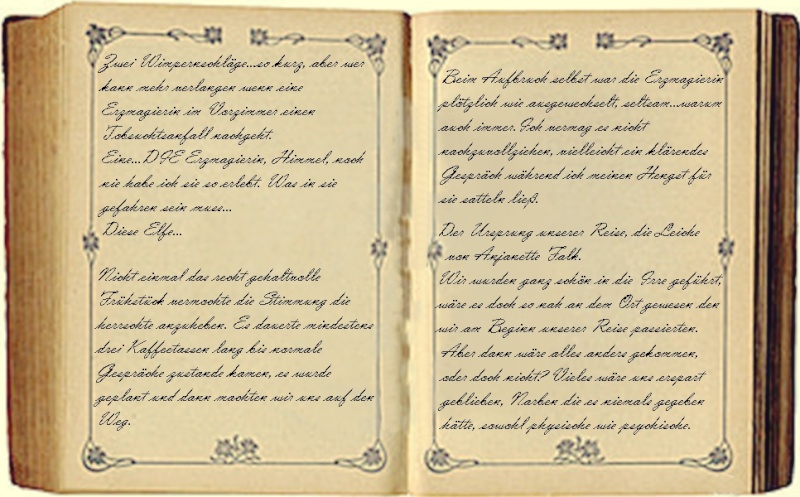 Zwei Wimpernschläge...so kurz, aber wer
kann mehr verlangen wenn eine
Erzmagierin im Vorzimmer einen
Tobsuchtsanfall nachgeht.
Eine...DIE Erzmagierin, Himmel, noch
nie habe ich sie so erlebt. Was in sie
gefahren sein muss...
Diese Elfe...
Nicht einmal das recht gehaltvolle
Frühstück vermochte die Stimmung die
herrschte anzuheben. Es dauerte mindestens
drei Kaffeetassen lang bis normale
Gespräche zustande kamen, es wurde
geplant und dann machten wir uns auf den
Weg.
Beim Aufbruch selbst war die Erzmagierin
plötzlich wie ausgewechselt, seltsam...warum
auch immer. Ich vermag es nicht
nachzuvollziehen, vielleicht ein klärendes
Gespräch während ich meinen Hengst für
sie satteln ließ.
Der Ursprung unserer Reise, die Leiche
von Anjanette Falk.
Wir wurden ganz schön in die Irre geführt,
wäre es doch so nah an dem Ort gewesen den
wir am Beginn unserer Reise passierten.
Aber dann wäre alles anders gekommen,
oder doch nicht? Vieles wäre uns erspart
geblieben, Narben die es niemals gegeben
hätte, sowohl physische wie psychische.